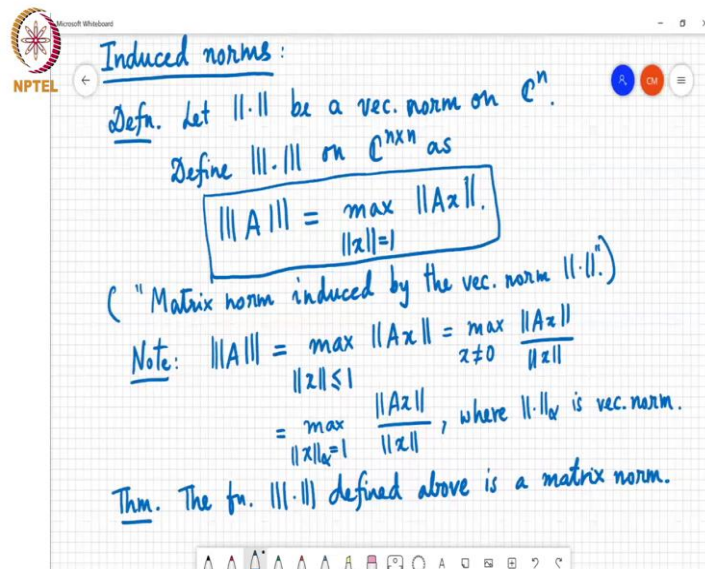 Microsoft Whiteboard
NPTEL
CM
Induced norms:
Defn. Let ||·|| be a vec. norm on ℂⁿ.
Define |||·||| on ℂⁿˣⁿ as
|||A||| = max ||x||=1 ||Ax||.
("Matrix norm induced by the vec. norm ||·||".)
Note: |||A||| = max ||x||≤1 ||Ax|| = max x≠0 ||Ax|| / ||x||
= max ||x||α=1 ||Ax|| / ||x||, where ||·||α is vec. norm.
Thm. The fn. |||·||| defined above is a matrix norm.